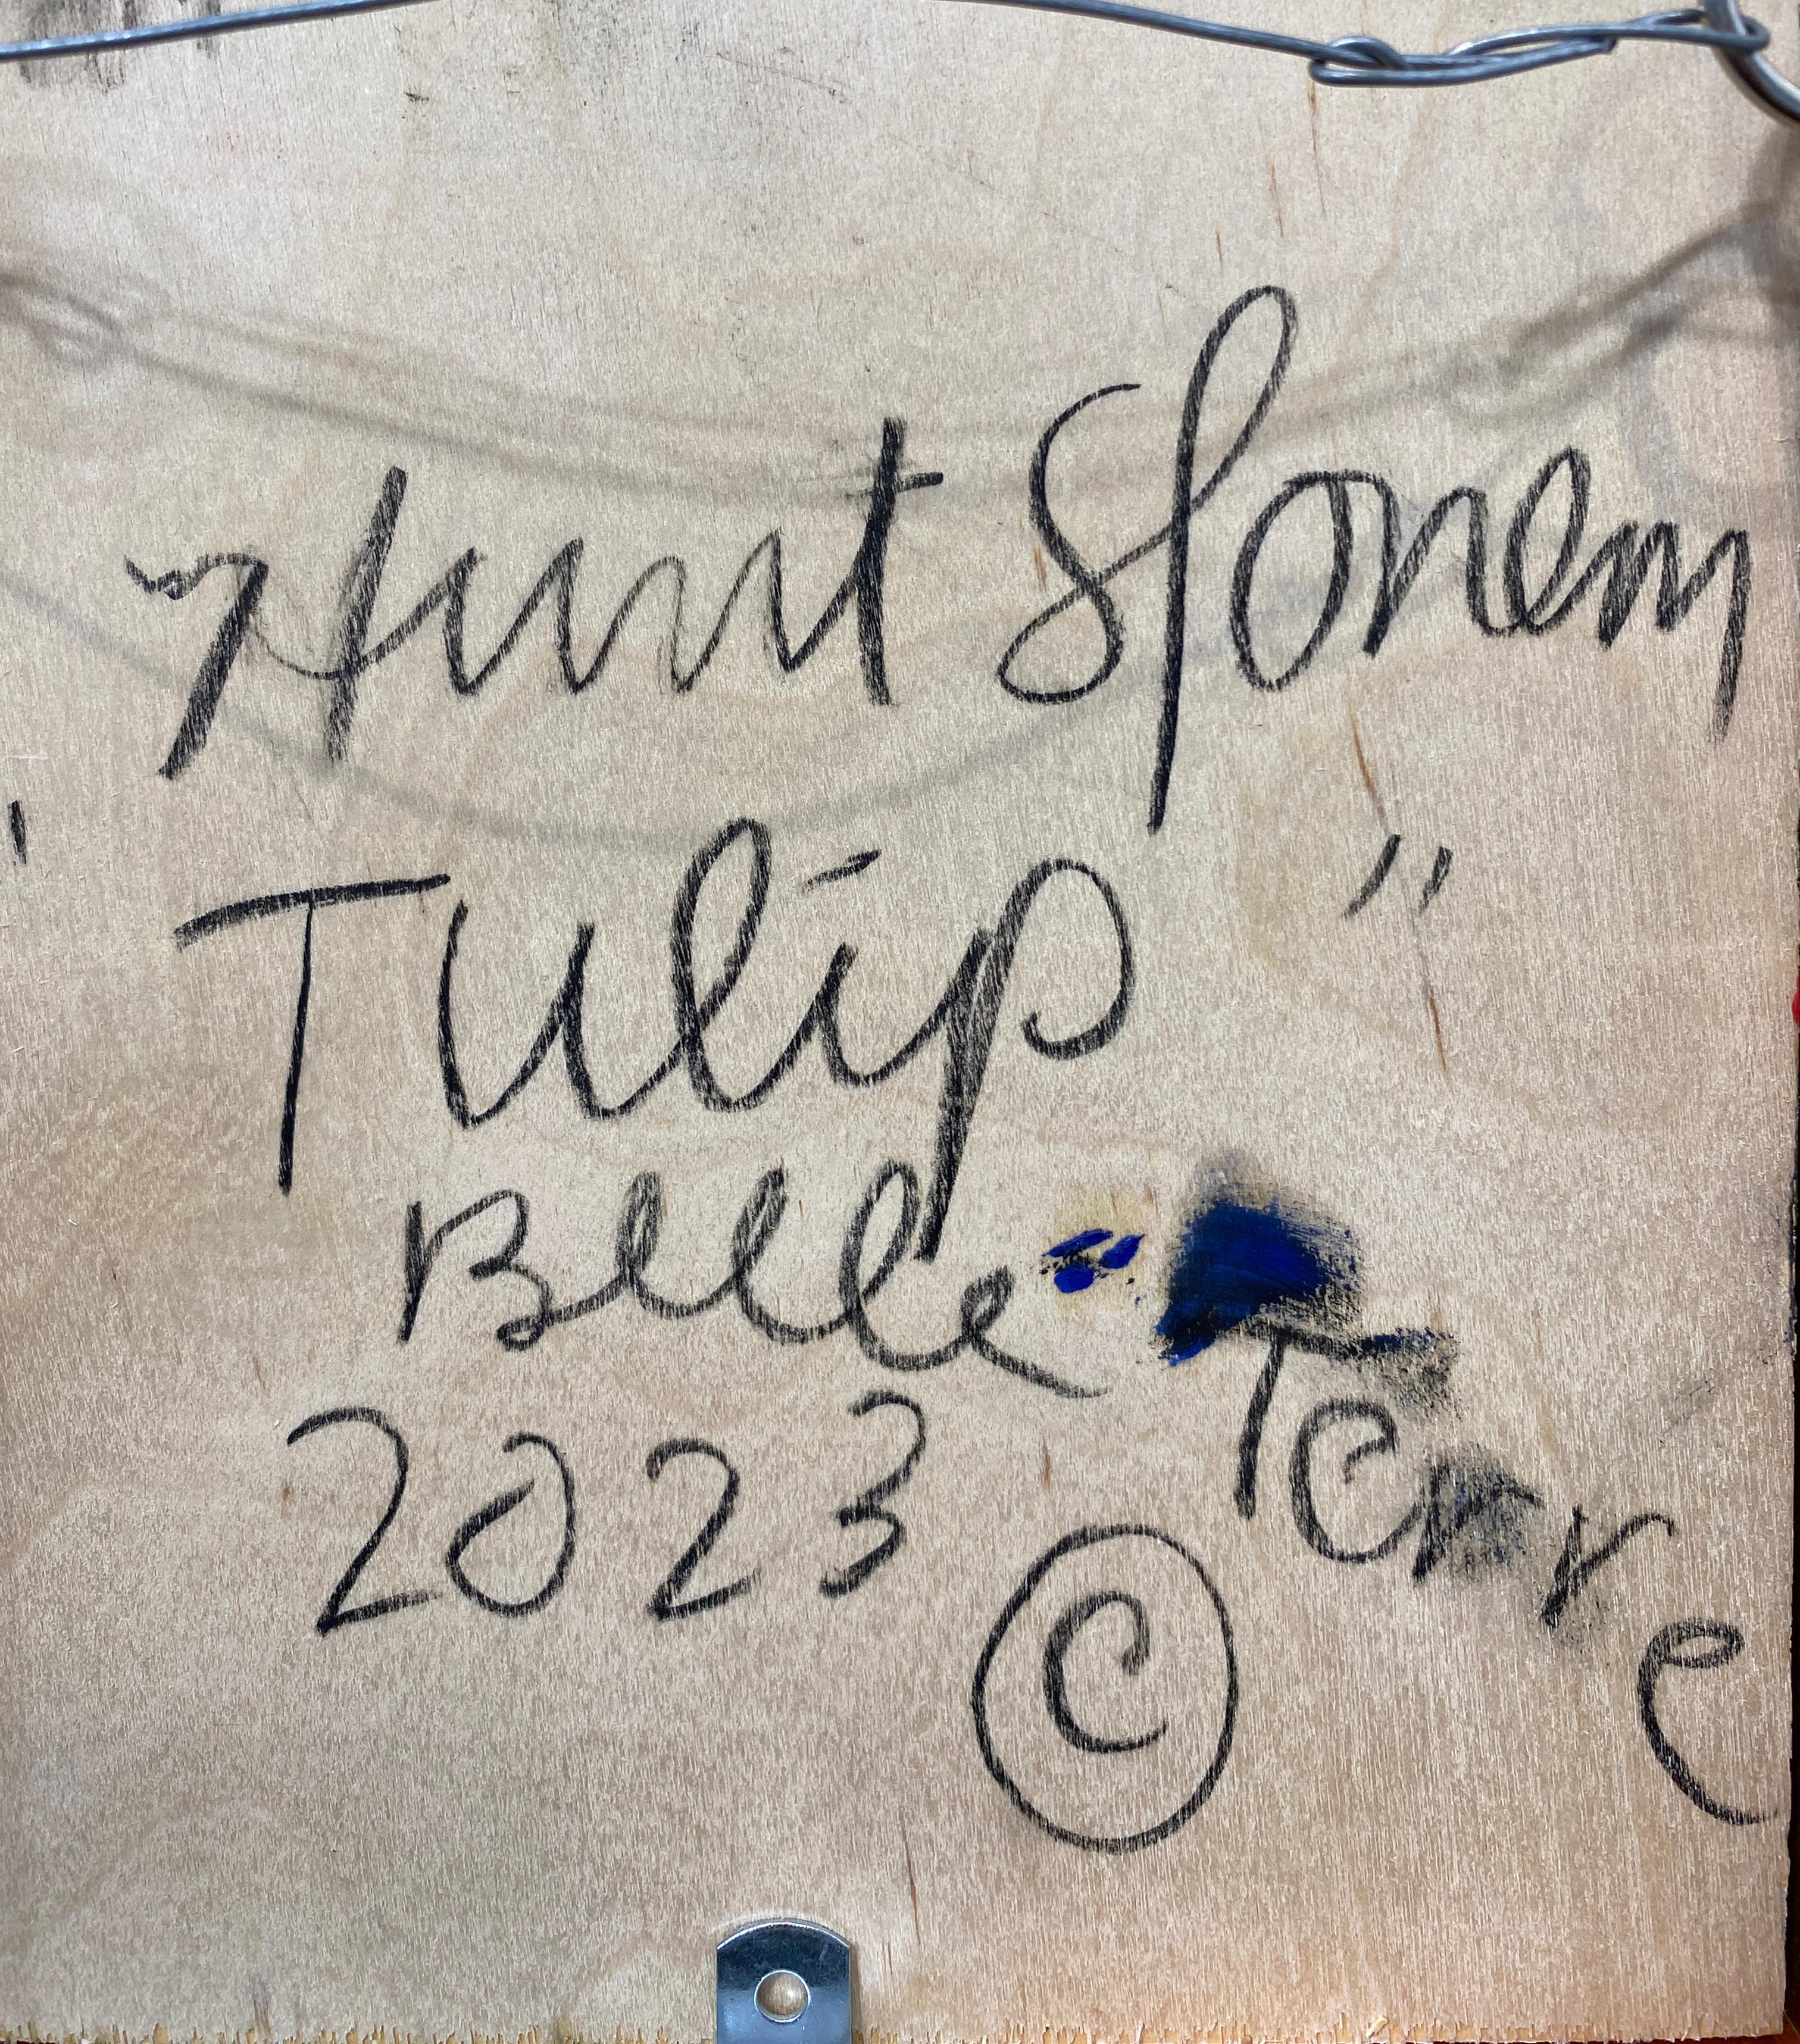 Hunt Slonem
"Tulip"
Belle Terre
2023 ©